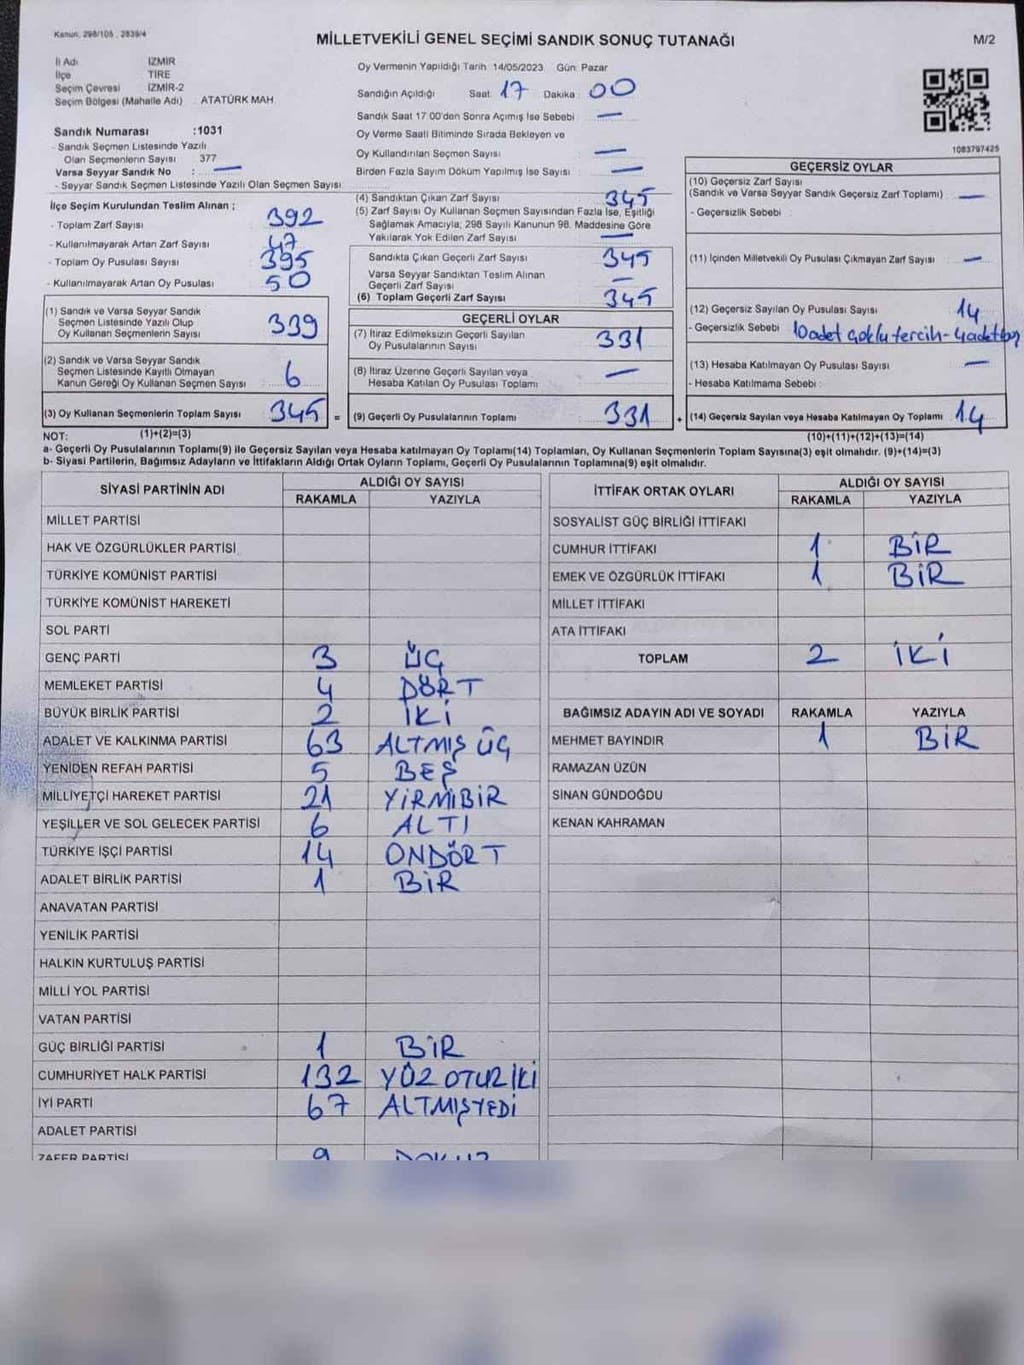 Kanun: 298/105 , 2839/4
MİLLETVEKİLİ GENEL SEÇİMİ SANDIK SONUÇ TUTANAĞI
M/2
İl Adı İZMİR
İlçe TİRE
Seçim Çevresi İZMİR-2
Seçim Bölgesi (Mahalle Adı) : ATATÜRK MAH.
Oy Vermenin Yapıldığı Tarih: 14/05/2023 Gün: Pazar
Sandığın Açıldığı Saat: 17 Dakika: 00
Sandık Saat 17:00'den Sonra Açımış İse Sebebi : —
Oy Verme Saati Bitiminde Sırada Bekleyen ve
Oy Kullandırılan Seçmen Sayısı : —
Birden Fazla Sayım Döküm Yapılmış İse Sayısı : —
1083797425
Sandık Numarası :1031
- Sandık Seçmen Listesinde Yazılı
Olan Seçmenlerin Sayısı 377
Varsa Seyyar Sandık No : —
- Seyyar Sandık Seçmen Listesinde Yazılı Olan Seçmen Sayısı
İlçe Seçim Kurulundan Teslim Alınan ;
- Toplam Zarf Sayısı 392
- Kullanılmayarak Artan Zarf Sayısı 47
- Toplam Oy Pusulası Sayısı 395
- Kullanılmayarak Artan Oy Pusulası 50
(1) Sandık ve Varsa Seyyar Sandık
Seçmen Listesinde Yazılı Olup
Oy Kullanan Seçmenlerin Sayısı 339
(2) Sandık ve Varsa Seyyar Sandık
Seçmen Listesinde Kayıtlı Olmayan
Kanun Gereği Oy Kullanan Seçmen Sayısı 6
(3) Oy Kullanan Seçmenlerin Toplam Sayısı 345 =
(1)+(2)=(3)
(4) Sandıktan Çıkan Zarf Sayısı 345
(5) Zarf Sayısı Oy Kullanan Seçmen Sayısından Fazla İse, Eşitliği
Sağlamak Amacıyla, 298 Sayılı Kanunun 98. Maddesine Göre
Yakılarak Yok Edilen Zarf Sayısı —
Sandıkta Çıkan Geçerli Zarf Sayısı 345
Varsa Seyyar Sandıktan Teslim Alınan
Geçerli Zarf Sayısı —
(6) Toplam Geçerli Zarf Sayısı 345
GEÇERLİ OYLAR
(7) İtiraz Edilmeksizin Geçerli Sayılan
Oy Pusulalarının Sayısı 331
(8) İtiraz Üzerine Geçerli Sayılan veya
Hesaba Katılan Oy Pusulası Toplamı —
(9) Geçerli Oy Pusulalarının Toplamı 331 +
GEÇERSİZ OYLAR
(10) Geçersiz Zarf Sayısı
(Sandık ve Varsa Seyyar Sandık Geçersiz Zarf Toplamı) —
- Geçersizlik Sebebi :
(11) İçinden Milletvekili Oy Pusulası Çıkmayan Zarf Sayısı —
(12) Geçersiz Sayılan Oy Pusulası Sayısı 14
- Geçersizlik Sebebi 10 adet çoklu tercih - 4 adet boş
(13) Hesaba Katılmayan Oy Pusulası Sayısı —
- Hesaba Katılmama Sebebi :
(14) Geçersiz Sayılan veya Hesaba Katılmayan Oy Toplamı 14
(10)+(11)+(12)+(13)=(14)
NOT:
a- Geçerli Oy Pusulalarının Toplamı(9) ile Geçersiz Sayılan veya Hesaba katılmayan Oy Toplamı(14) Toplamları, Oy Kullanan Seçmenlerin Toplam Sayısına(3) eşit olmalıdır. (9)+(14)=(3)
b- Siyasi Partilerin, Bağımsız Adayların ve İttifakların Aldığı Ortak Oyların Toplamı, Geçerli Oy Pusulalarının Toplamına(9) eşit olmalıdır.
SİYASİ PARTİNİN ADI ALDIĞI OY SAYISI
RAKAMLA YAZIYLA
MİLLET PARTİSİ
HAK VE ÖZGÜRLÜKLER PARTİSİ
TÜRKİYE KOMÜNİST PARTİSİ
TÜRKİYE KOMÜNİST HAREKETİ
SOL PARTİ
GENÇ PARTİ 3 ÜÇ
MEMLEKET PARTİSİ 4 DÖRT
BÜYÜK BİRLİK PARTİSİ 2 İKİ
ADALET VE KALKINMA PARTİSİ 63 ALTMIŞ ÜÇ
YENİDEN REFAH PARTİSİ 5 BEŞ
MİLLİYETÇİ HAREKET PARTİSİ 21 YİRMİBİR
YEŞİLLER VE SOL GELECEK PARTİSİ 6 ALTI
TÜRKİYE İŞÇİ PARTİSİ 14 ONDÖRT
ADALET BİRLİK PARTİSİ 1 BİR
ANAVATAN PARTİSİ
YENİLİK PARTİSİ
HALKIN KURTULUŞ PARTİSİ
MİLLİ YOL PARTİSİ
VATAN PARTİSİ
GÜÇ BİRLİĞİ PARTİSİ 1 BİR
CUMHURİYET HALK PARTİSİ 132 YÜZ OTUZ İKİ
İYİ PARTİ 67 ALTMIŞYEDİ
ADALET PARTİSİ
ZAFER PARTİSİ 9 DOKUZ
İTTİFAK ORTAK OYLARI ALDIĞI OY SAYISI
RAKAMLA YAZIYLA
SOSYALİST GÜÇ BİRLİĞİ İTTİFAKI
CUMHUR İTTİFAKI 1 BİR
EMEK VE ÖZGÜRLÜK İTTİFAKI 1 BİR
MİLLET İTTİFAKI
ATA İTTİFAKI
TOPLAM 2 İKİ
BAĞIMSIZ ADAYIN ADI VE SOYADI RAKAMLA YAZIYLA
MEHMET BAYINDIR 1 BİR
RAMAZAN ÜZÜN
SİNAN GÜNDOĞDU
KENAN KAHRAMAN